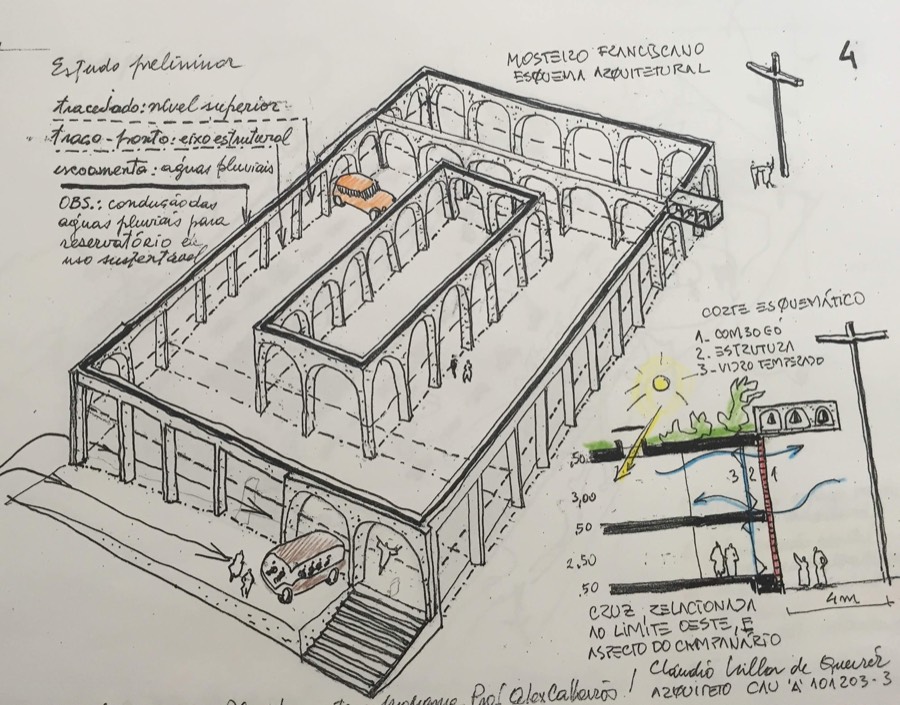 Estudo preliminar
tracejado: nível superior
traço-ponto: eixo estrutural
escoamento: águas pluviais
OBS.: condução das
águas pluviais para
reservatório e
uso sustentável
MOSTEIRO FRANCISCANO
ESQUEMA ARQUITETURAL
4
CORTE ESQUEMÁTICO
1. COMBOGÓ
2. ESTRUTURA
3. VIDRO TEMPERADO
,50
3 2 1
3,00
,50
2,50
,50
4m
CRUZ RELACIONADA
AO LIMITE OESTE, E
ASPECTO DO CAMPANÁRIO
Prof. Alex Calheiros /
Cláudio de Queiroz
ARQUITETO CAU 'A' 101203-3